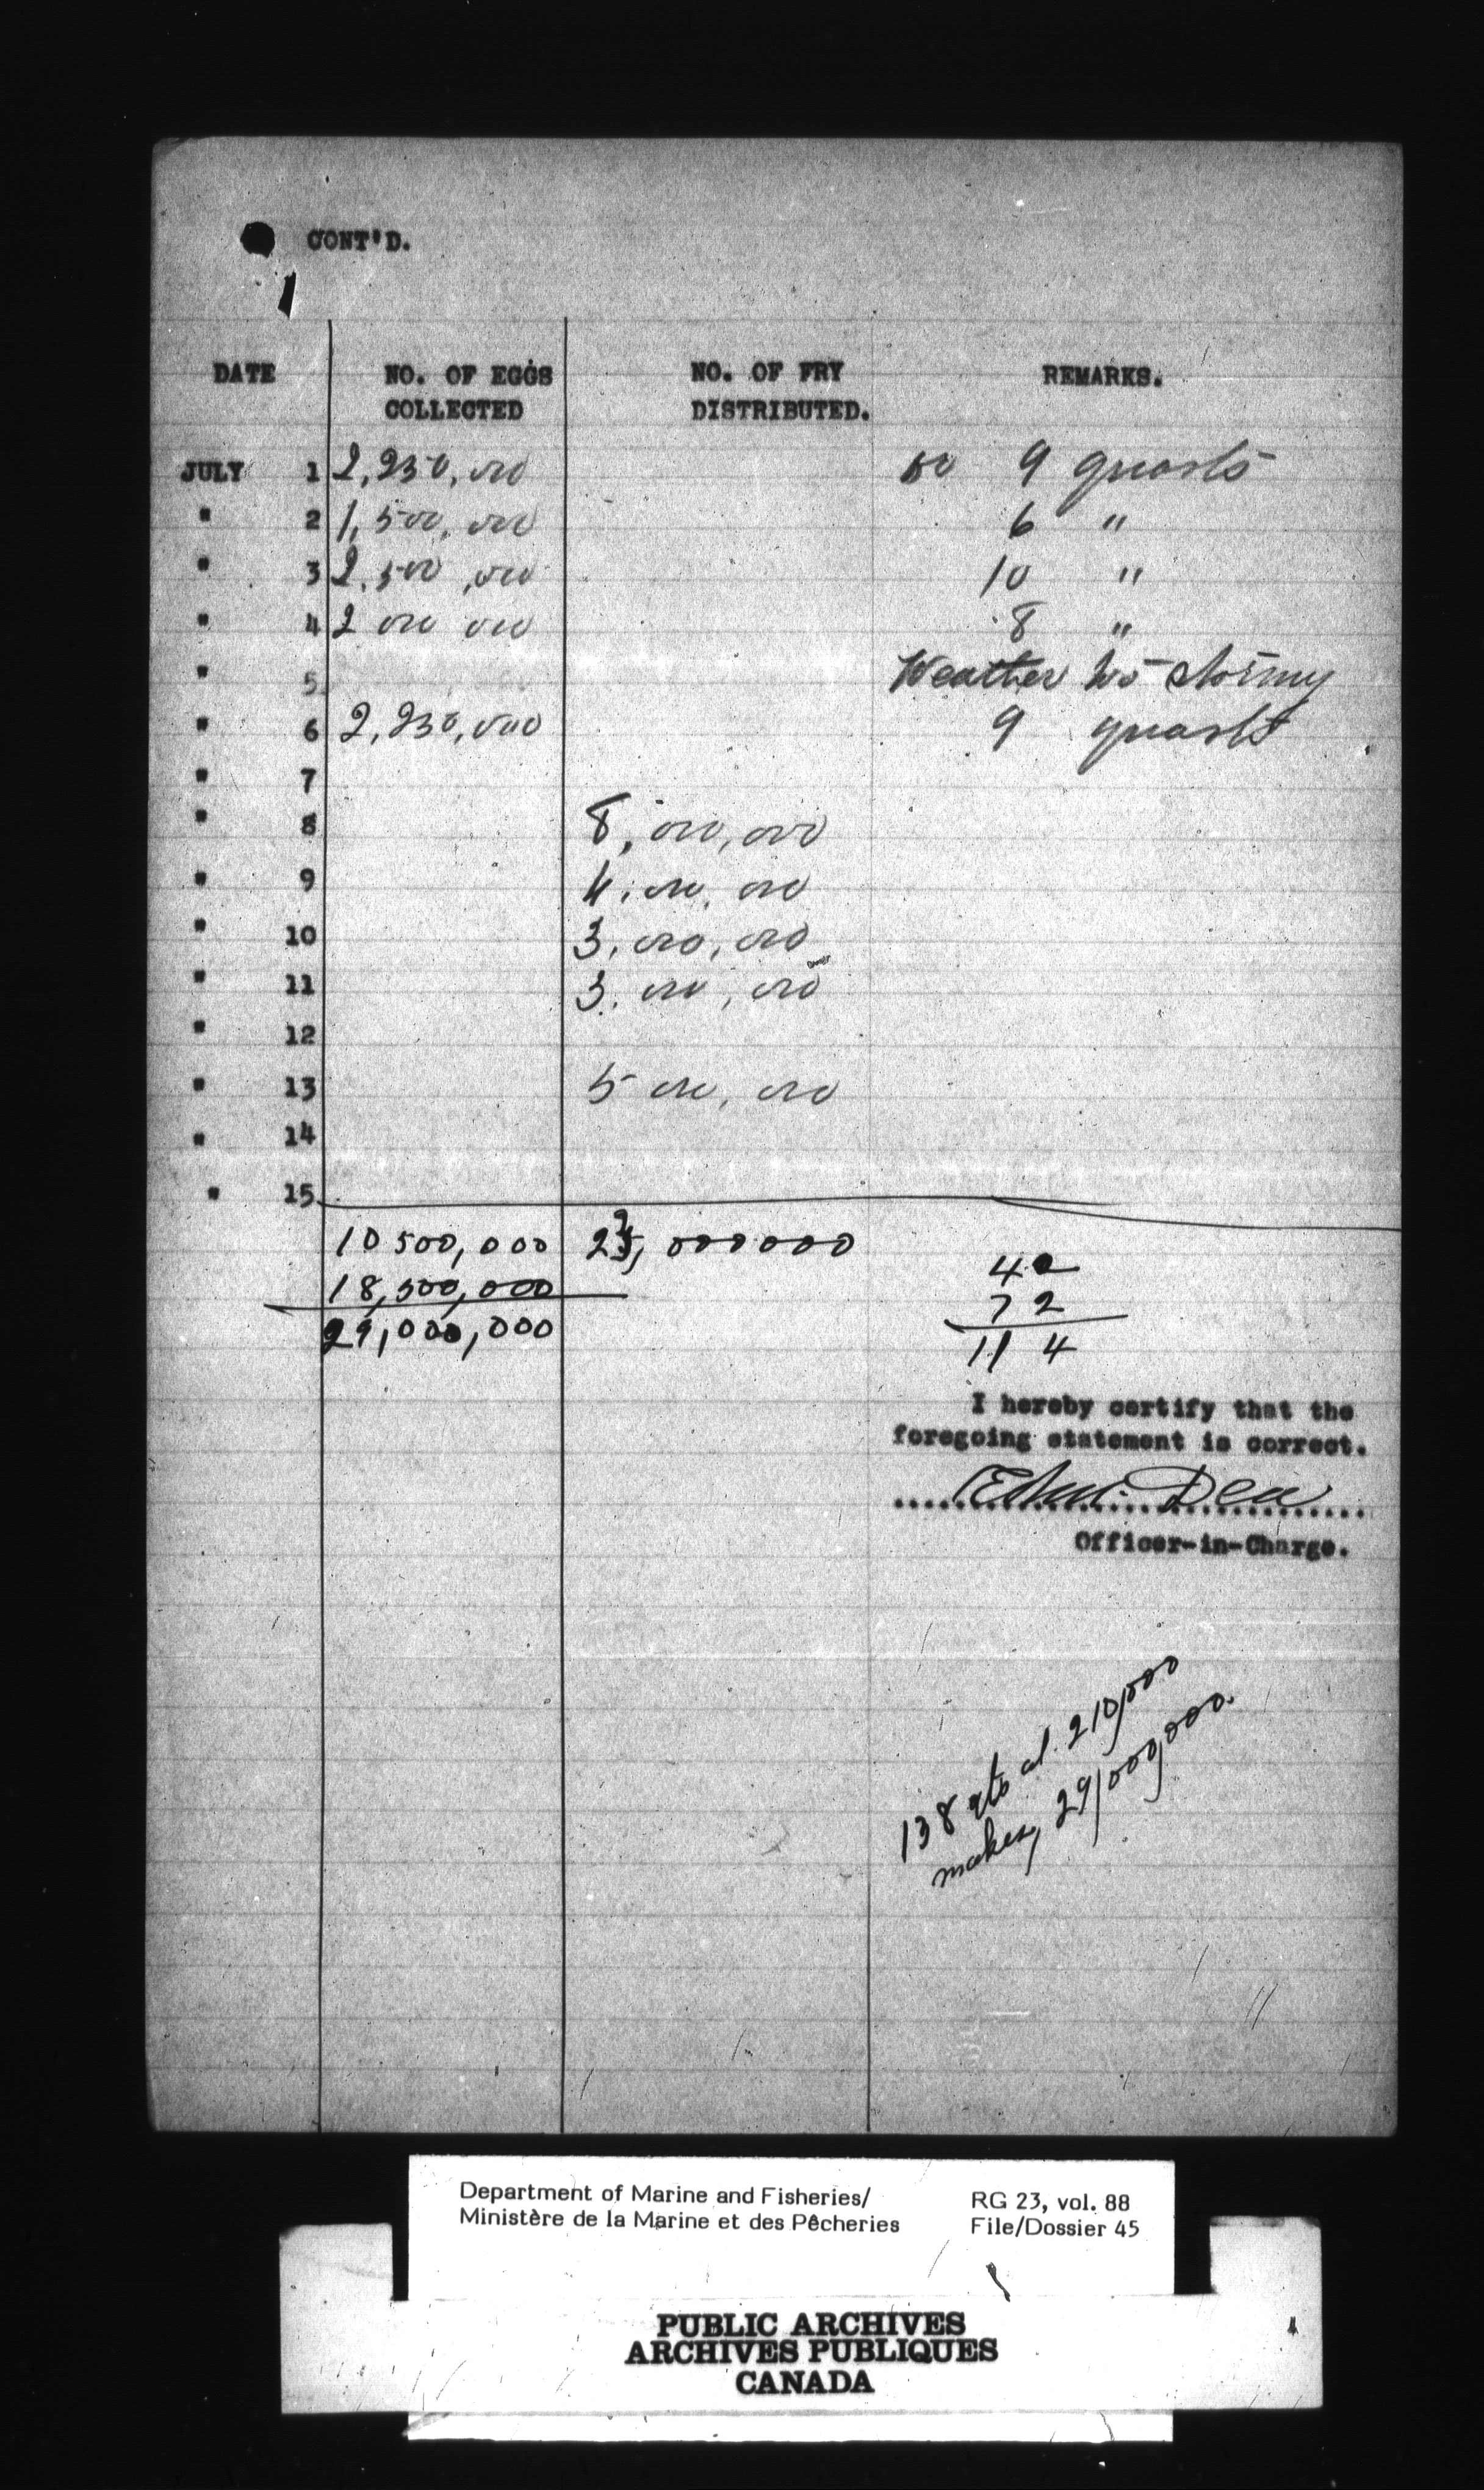 CONT'D.
DATE NO. OF EGGS COLLECTED NO. OF FRY DISTRIBUTED. REMARKS.
JULY 1 2,250,000 9 quarts
" 2 1,500,000 6 "
" 3 2,500,000 10 "
" 4 2 000 000 8 "
" 5 Weather too stormy
" 6 2,250,000 9 quarts
" 7
" 8 8,000,000
" 9 4,000,000
" 10 3,000,000
" 11 3,000,000
" 12
" 13 5 000,000
" 14
" 15
10 500,000 23,000000
18,500,000
29,000,000
42
72
114
I hereby certify that the
foregoing statement is correct.
Officer-in-Charge.
138 qts at 210,000
makes, 29,000,000.
Department of Marine and Fisheries/
Ministère de la Marine et des Pêcheries
RG 23, vol. 88
File/Dossier 45
PUBLIC ARCHIVES
ARCHIVES PUBLIQUES
CANADA